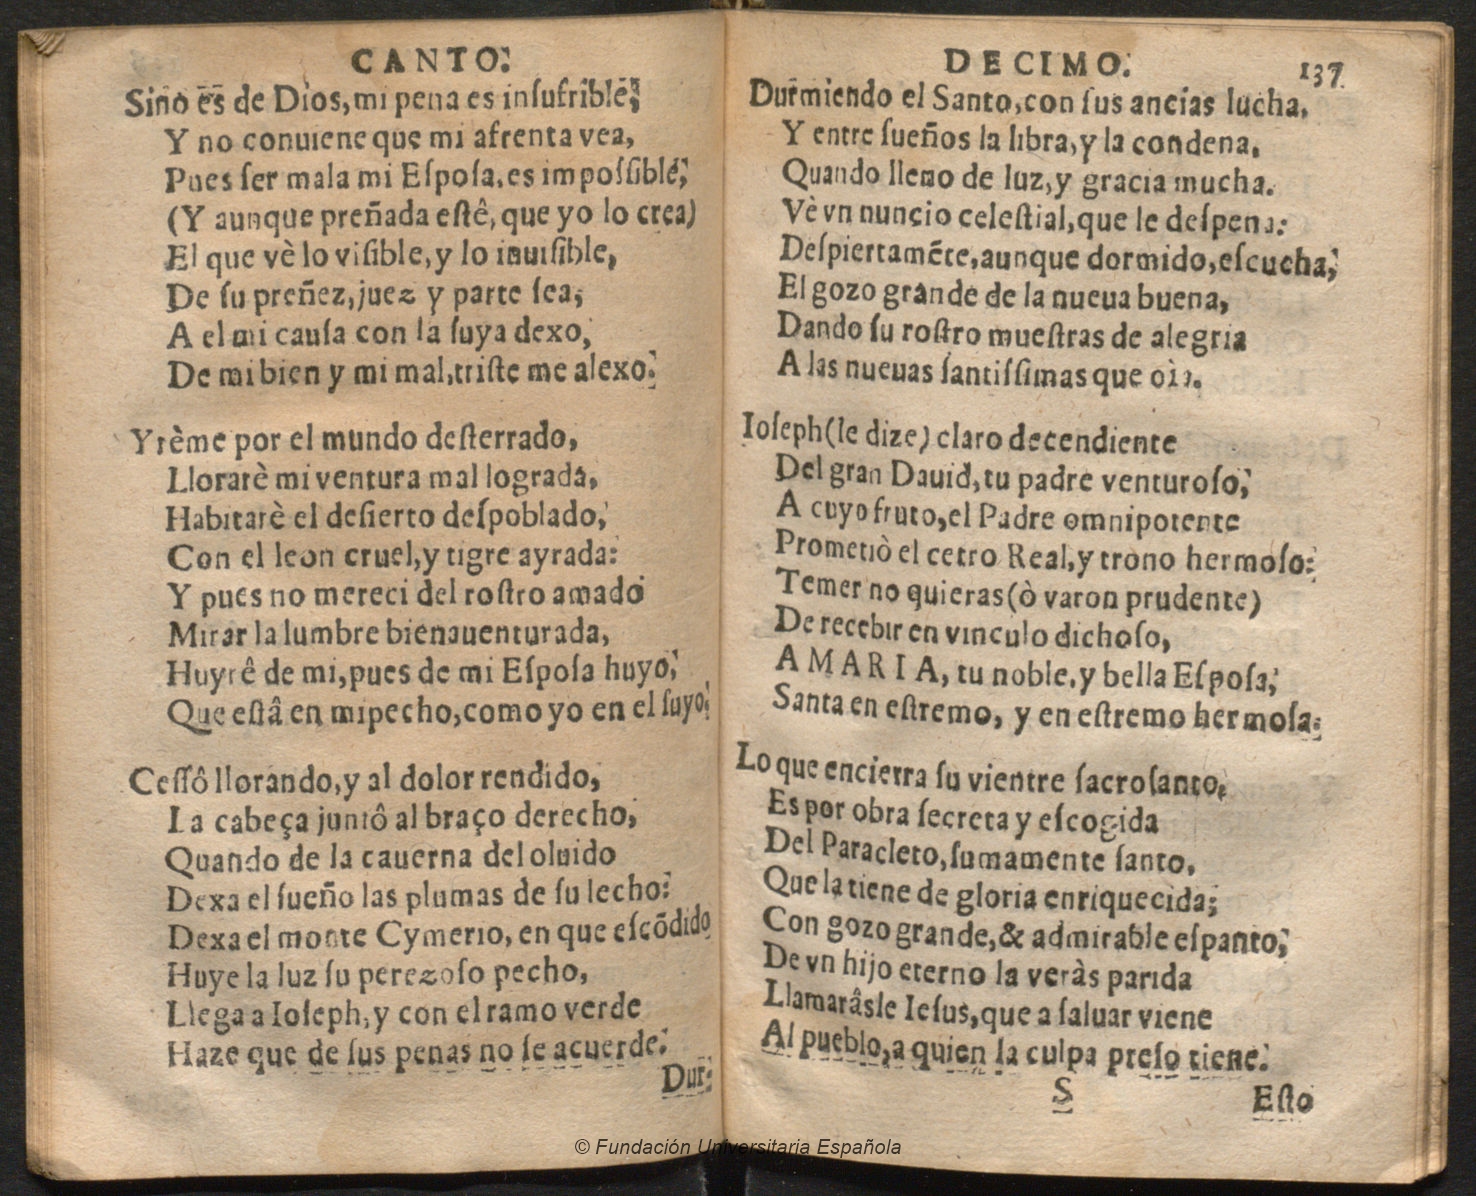 CANTO.
Sino es de Dios, mi pena es insufrible;
Y no conuiene que mi afrenta vea,
Pues ser mala mi Esposa, es impossible,
(Y aunque preñada estê, que yo lo crea)
El que vè lo visible, y lo inuisible,
De su preñez, juez y parte sea,
A el mi causa con la suya dexo,
De mi bien y mi mal, triste me alexo.
Yrème por el mundo desterrado,
Llorarè mi ventura mal lograda,
Habitarè el desierto despoblado,
Con el leon cruel, y tigre ayrada:
Y pues no mereci del rostro amado
Mirar la lumbre bienauenturada,
Huyrê de mi, pues de mi Esposa huyo,
Que estâ en mi pecho, como yo en el suyo.
Cessô llorando, y al dolor rendido,
La cabeça juntô al braço derecho,
Quando de la cauerna del oluido
Dexa el sueño las plumas de su lecho:
Dexa el monte Cymerio, en que escõdido
Huye la luz su perezoso pecho,
Llega a Ioseph, y con el ramo verde
Haze que de sus penas no se acuerde.
Dur-
DECIMO. 137
Durmiendo el Santo, con sus ancias lucha,
Y entre sueños la libra, y la condena,
Quando lleno de luz, y gracia mucha.
Vè vn nuncio celestial, que le despena:
Despiertamẽte, aunque dormido, escucha,
El gozo grande de la nueua buena,
Dando su rostro muestras de alegria
A las nueuas santissimas que oìa.
Ioseph (le dize) claro decendiente
Del gran Dauid, tu padre venturoso,
A cuyo fruto, el Padre omnipotente
Prometiò el cetro Real, y trono hermoso:
Temer no quieras (ò varon prudente)
De recebir en vinculo dichoso,
A MARIA, tu noble, y bella Esposa,
Santa en estremo, y en estremo hermosa.
Lo que encierra su vientre sacrosanto,
Es por obra secreta y escogida
Del Paracleto, sumamente santo,
Que la tiene de gloria enriquecida;
Con gozo grande, & admirable espanto,
De vn hijo eterno la veràs parida
Llamarâsle Iesus, que a saluar viene
Al pueblo, a quien la culpa preso tiene.
S Esto
© Fundación Universitaria Española